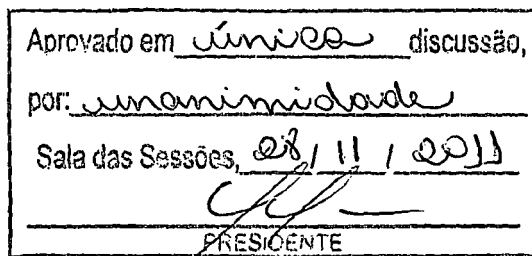 Aprovado em única discussão,
por: unanimidade
Sala das Sessões, 28 / 11 / 2011
PRESIDENTE